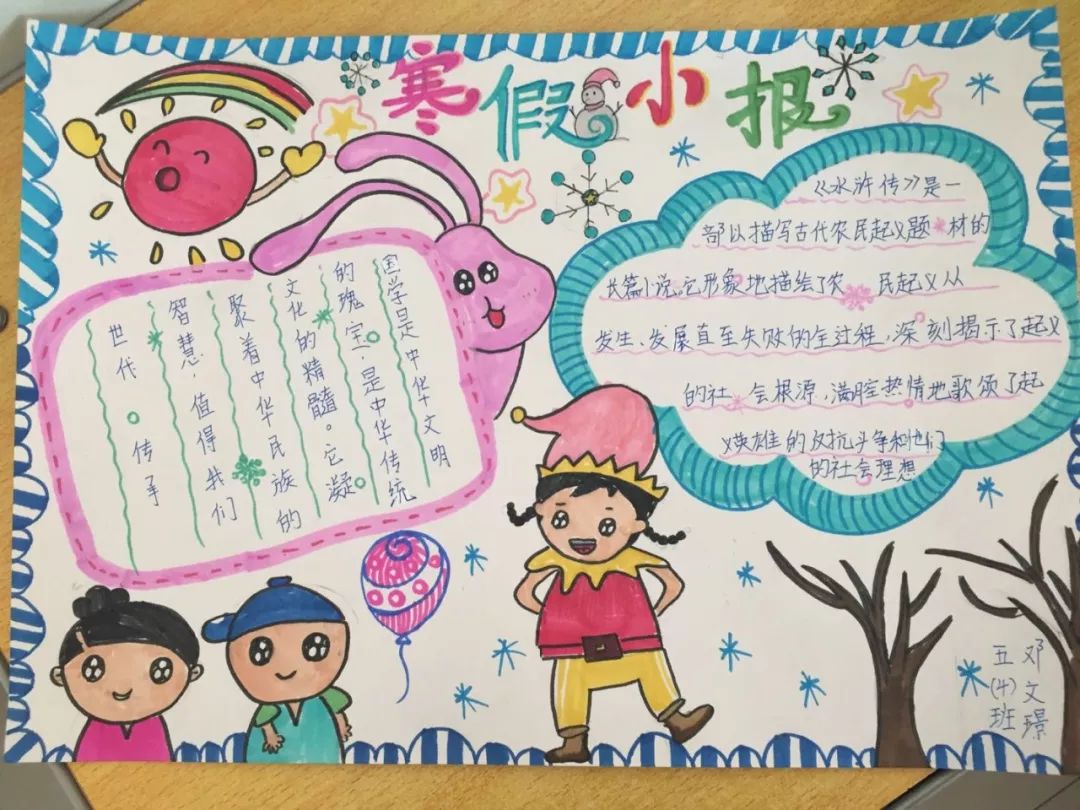 寒假小报
国学是中华文明
的瑰宝，是中华传统
文化的精髓。它凝
聚着中华民族的
智慧，值得我们
世代传承
《水浒传》是一
部以描写古代农民起义题材的
长篇小说。它形象地描绘了农民起义从
发生、发展直至失败的全过程，深刻揭示了起义
的社会根源，满腔热情地歌颂了起
义英雄的反抗斗争和他们
的社会理想
五(4)班
邓文璟